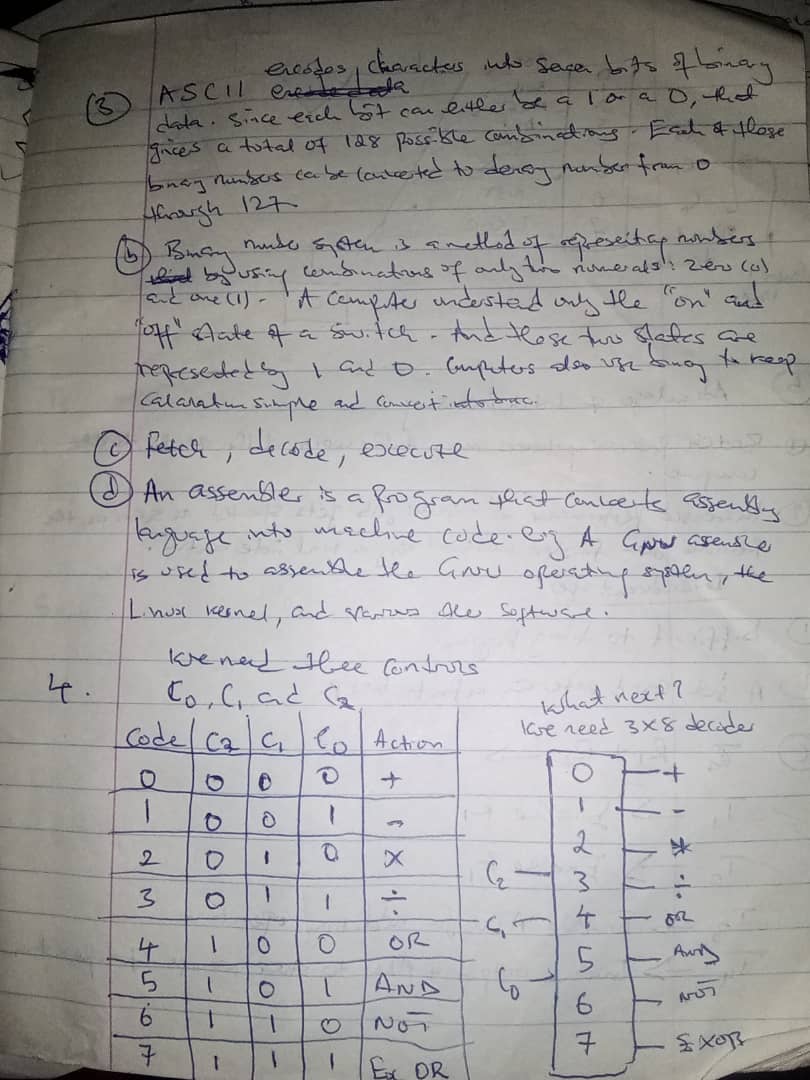 encodes characters into seven bits of binary
(3) ASCII
data. Since each bit can either be a 1 or a 0, that
gives a total of 128 possible combinations. Each of these
binary numbers can be converted to denary number from 0
through 127
(b) Binary number system is a method of representing numbers
by using combinations of only two numerals: zero (0)
and one (1) - A computer understand only the "on" and
"off" state of a switch. And these two states are
represented by 1 and 0. Computers also use binary to keep
simple and convert
(c) Fetch, decode, execute
(d) An assembler is a program that converts assembly
language into machine code. eg A GNU
is used to assemble the GNU operating system, the
Linux kernel, and various other software.
We need three controls
4. C0, C1 and C2
What next?
We need 3x8 decoder
Code C2 C1 C0 Action
0 0 0 0 +
1 0 0 1 -
2 0 1 0 X
3 0 1 1 ÷
4 1 0 0 OR
5 1 0 1 AND
6 1 1 0 NOT
7 1 1 1 Ex OR
C2
C1
C0
0 +
1 -
2 *
3 ÷
4 OR
5 AND
6 NOT
7 EXOR